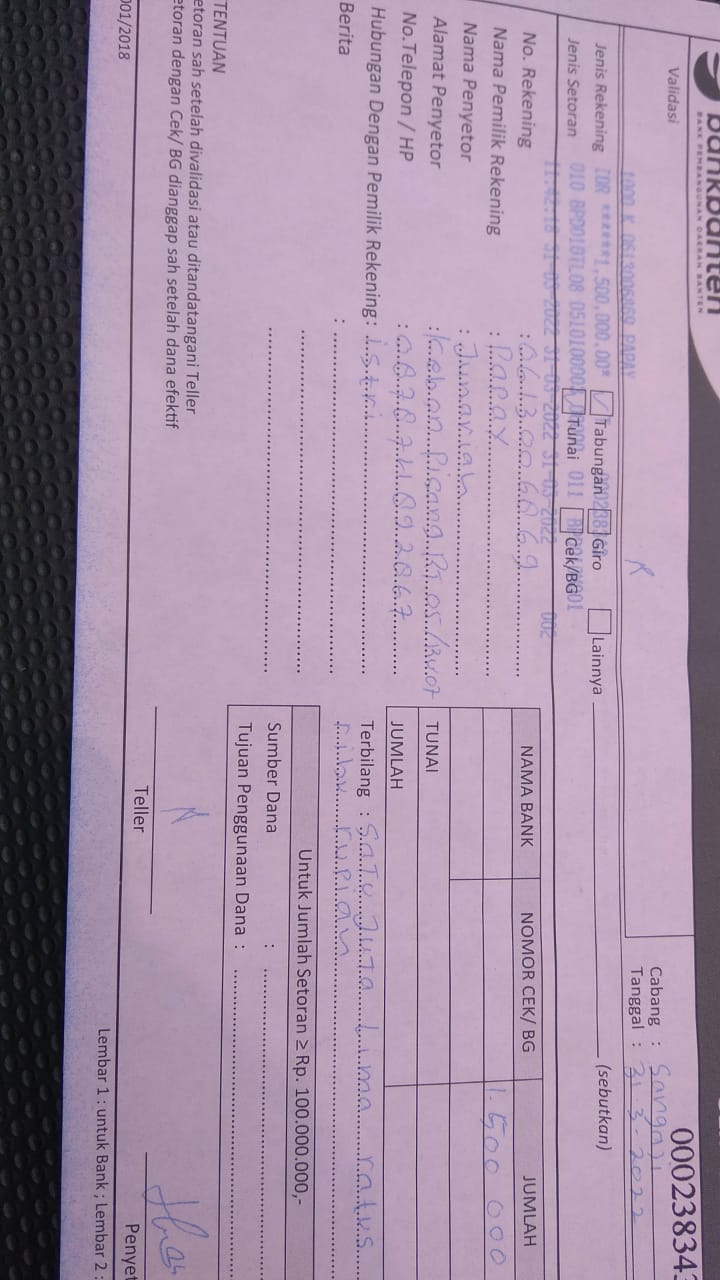 bankbanten
BANK PEMBANGUNAN DAERAH BANTEN
00023834
Validasi
1000 K 0613006869 PAPAY
IDR ******1,500,000.00*
11:42:18 31-03-2022 31-03-2022 31-03-2022 002
Cabang : Sangaji
Tanggal : 31 3-2022
Jenis Rekening Tabungan Giro Lainnya (sebutkan)
Jenis Setoran Tunai Cek/BG
No. Rekening : 0613006869
Nama Pemilik Rekening : Papay
Nama Penyetor : Junariah
Alamat Penyetor : Kebon Pisang RT.05/RW.07
No.Telepon / HP :
Hubungan Dengan Pemilik Rekening: istri
Berita :
NAMA BANK NOMOR CEK/ BG JUMLAH
1.500 000
TUNAI
JUMLAH
Terbilang : Satu Juta Lima ratus
ribu rupiah
Untuk Jumlah Setoran ≥ Rp. 100.000.000,-
Sumber Dana :
Tujuan Penggunaan Dana :
TENTUAN
etoran sah setelah divalidasi atau ditandatangani Teller
etoran dengan Cek/ BG dianggap sah setelah dana efektif
Teller
Penyet
001/2018
Lembar 1 : untuk Bank ; Lembar 2 :